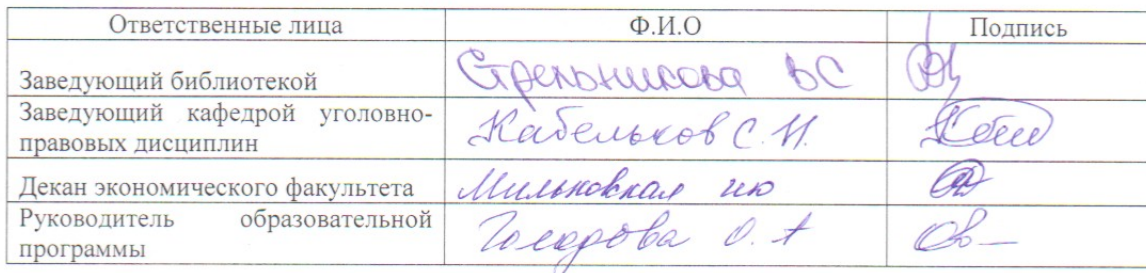 Ответственные лица Ф.И.О Подпись
Заведующий библиотекой Стрельникова ВС
Заведующий кафедрой уголовно-
правовых дисциплин Кабельков С.Н.
Декан экономического факультета Мильковская ию
Руководитель образовательной
программы О. А